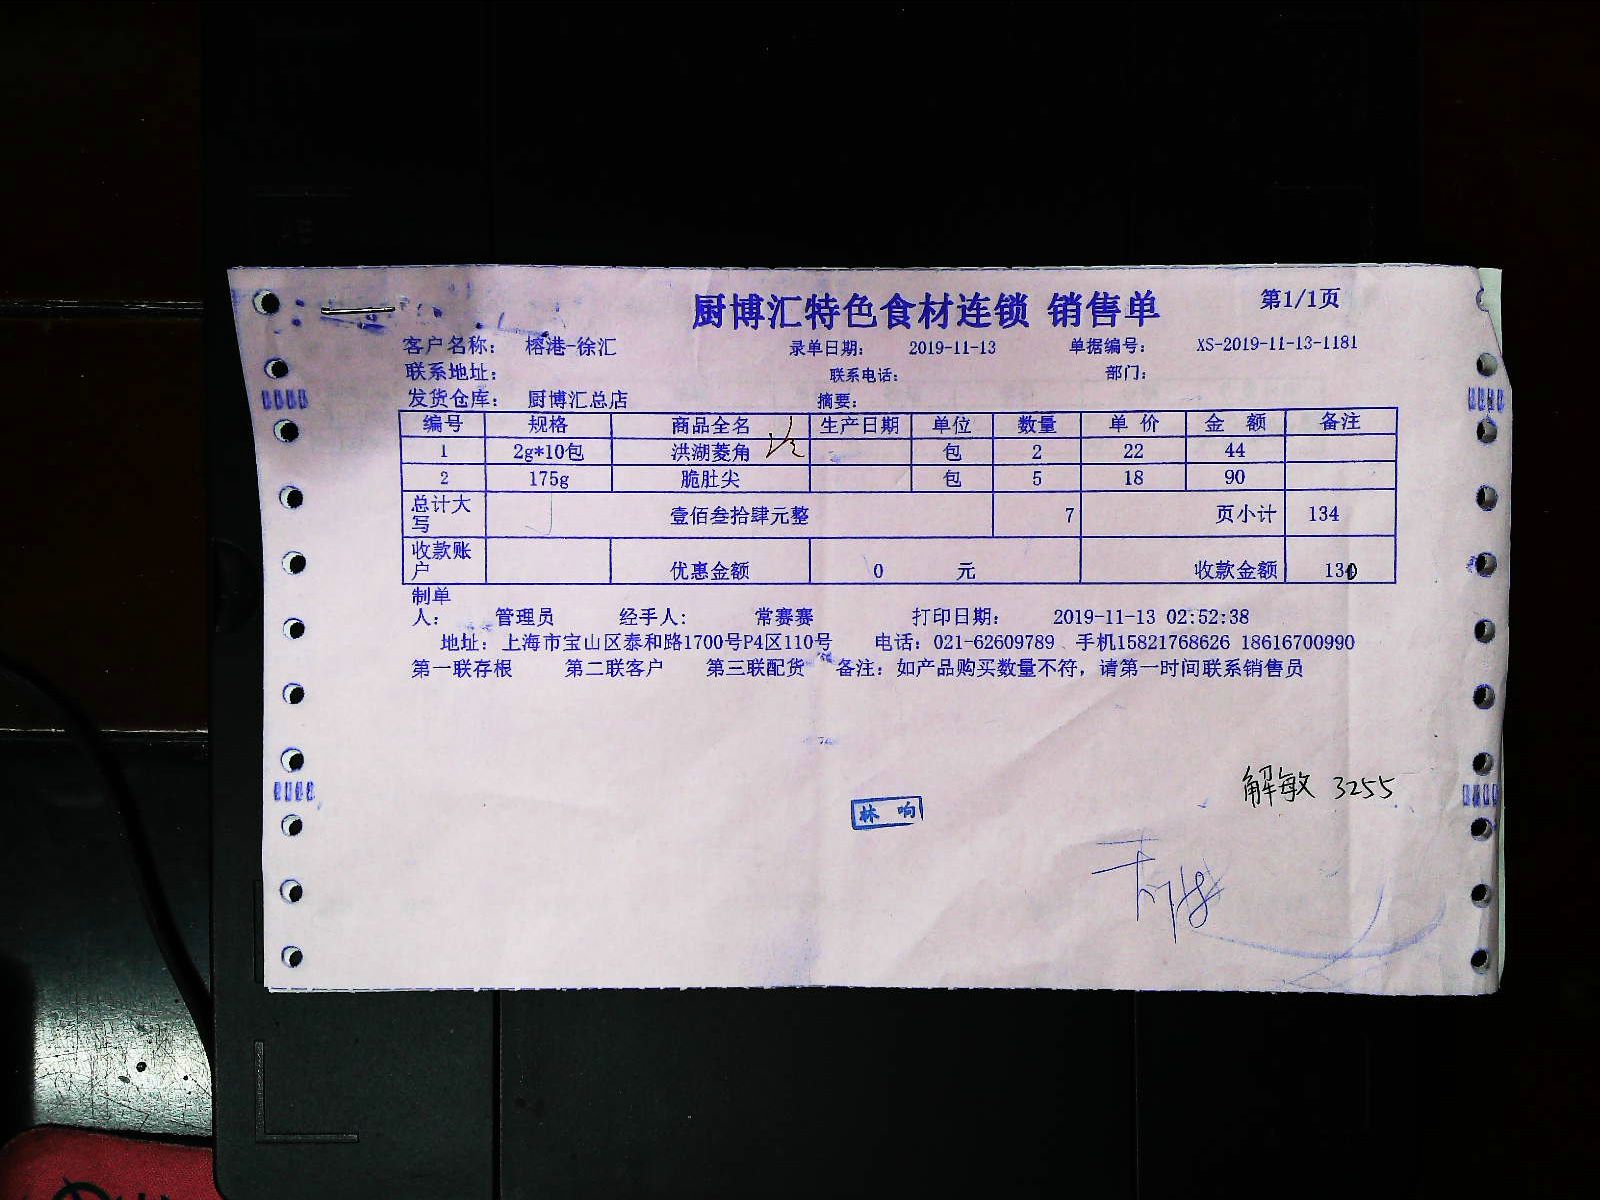 厨博汇特色食材连锁 销售单 第1/1页
客户名称： 榕港-徐汇 录单日期： 2019-11-13 单据编号： XS-2019-11-13-1181
联系地址： 联系电话： 部门：
发货仓库： 厨博汇总店 摘要：
编号 规格 商品全名 生产日期 单位 数量 单 价 金 额 备注
1 2g*10包 洪湖菱角 包 2 22 44
2 175g 脆肚尖 包 5 18 90
总计大写 壹佰叁拾肆元整 7 页小计 134
收款账户 优惠金额 0 元 收款金额 130
制单人： 管理员 经手人： 常赛赛 打印日期： 2019-11-13 02:52:38
地址：上海市宝山区泰和路1700号P4区110号 电话：021-62609789 手机15821768626 18616700990
第一联存根 第二联客户 第三联配货 备注：如产品购买数量不符，请第一时间联系销售员
解敏 3255
林 响